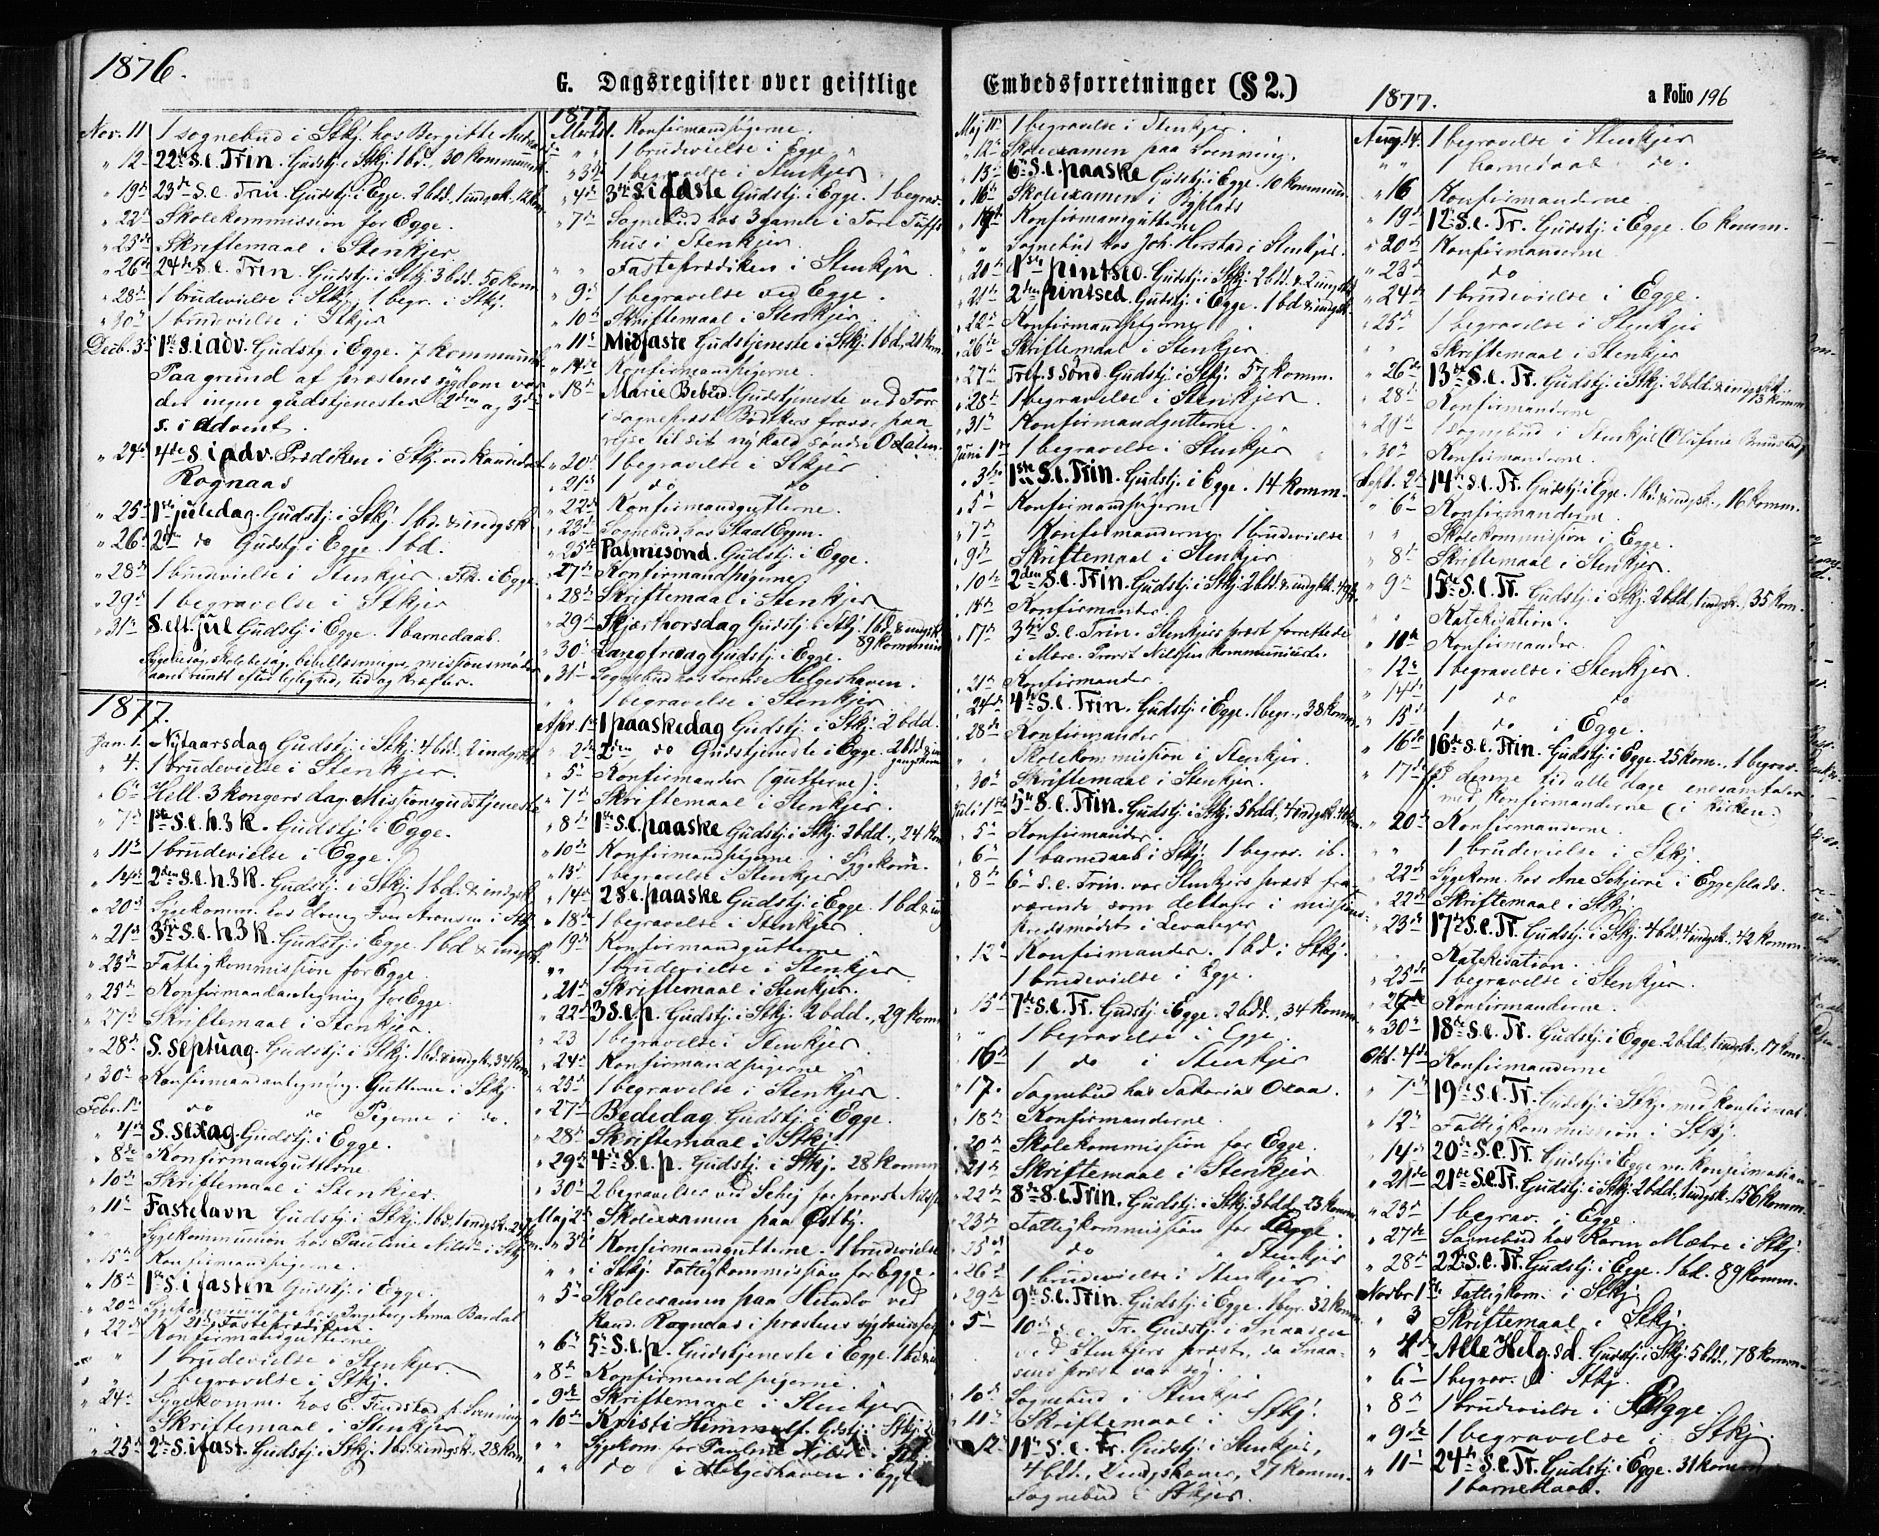 1876.
G. Dagsregister over geistlige
Nov. 11 1 sognebud i Stkj. hos Bergitte
" 12 22de S. e. Trin. Gudstj. i Stkj. 1 bd. 30 kommunik.
" 19de 23de S. e. Trin. Gudstj. i Egge. 2 bd., 1 indgsk., 12 kom.
" 22de Skolekommission for Egge.
" 25de Skriftemaal i Stenkjer.
" 26de 24de S. e. Trin. Gudstj. i Stkj. 3 bdd. 50 kom.
" 28de 1 brudevielse i Stkj. 1 begr. i Stkj.
" 30te 1 brudevielse i Stkjer
Decb. 3die 1ste S. i adv. Gudstj. i Egge. 7 kommunik.
Paa grund af præstens sygdom var
der ingen gudstjenester 2den og 3die
S. i Advent.
" 24de 4de S. i adv. Prædiken i Stkj. ved kandidat
Rognaas
" 25de 1ste juledag. Gudstj. i Stkj. 1 bd. & indgsk.
" 26de 2den do Gudstj. i Egge. 1 bd.
" 28de 1 brudevielse i Stenkjer. Fk. i Egge.
" 29de 1 begravelse i Stkjer
" 31te S. eft. jul Gudstj. i Egge. 1 barnedaab.
Sygebesøg, skolebesøg, bibellæsninger, missionsmøder
saavidt efter leilighed, tid og kræfter.
1877.
Jan. 1. Nytaarsdag Gudstj. i Stkj. 4 bd. 2 indgsk.
" 4. 1 brudevielse i Stenkjer.
" 6te Hell. 3 kongers dag. Missionsgudstjeneste
" 7de 1ste S. e. h. 3 k. Gudstj. i Egge.
" 11te 1 brudevielse i Egge.
" 14de 2den S. e. h. 3 k. Gudstj. i Stkj. 1 bd. & indgsk.
" 20de Sygekomm. hos Fru Aronsen i Stkj.
" 21de 3die S. e. h. 3 k. Gudstj. i Egge. 1 bd & indgsk.
" 23de Fattigkommission for Egge.
" 25de Konfirmandantegning for Egge.
" 27de Skriftemaal i Stenkjer.
" 28de S. Septuag. Gudstj. i Stkj. 1 bd. & indgsk. 34 kom.
" 30te Konfirmandantegning. Gutterne i Stkj.
Febr. 1ste do do Pigerne i do.
" 4de S. Sexag. Gudstj. i Egge.
" 8de Konfirmangutterne
" 10de Skriftemaal i Stenkjer.
" 11te Fastelavn Gudstj. i Stkj. 1 bd. 1 indgsk. 24 kom.
Sygekommunion hos Pauline Nilsen i Stkj.
" 15de Konfirmandpigerne.
" 18de 1ste S. i fasten Gudstj. i Egge.
" 20de hos Ingeborg Anna Bardal
21de Fasteprædiken
" 22de Konfirmandgutterne
" " 1 brudevielse i Stenkjer
" " 1 begravelse i Stkj.
" 24de Sygekomm. hos E. Findstad p. Sanning
" Skriftemaal i Stenkjer
" 25de 2den S. i fast. Gudstj. i Stkj. 1 bd. & indgsk. 28 kom
1877
Marts 1. Konfirmandpigerne.
" " 1 brudevielse i Egge
" 3die 1 begravelse i Stenkjer
" 4de 3die S. i faste Gudstj. i Egge. 1 begrav.
" 7de Sognebud hos 3 gamle i Tore
hus i Stenkjer.
" " Fasteprædiken i Stenkjer
" 9de 1 begravelse ved Egge.
" 10de Skriftemaal i Stenkjer
" 11te Midfaste Gudstjeneste i Stkj. 1 bd, 21 kom.
" 14de Konfirmandpigerne.
" 18de Marie Bebud. Gudstjeneste ved
sogneprest Bødtkers fravær paa
reise til sit nye kald søndre Odalen.
" 20de 1 begravelse i Stkjer
" 21de 1 do do
" 22de Konfirmandgutterne.
" 23de Sognebud hos
" 25de Palmesond. Gudstj. i Egge.
" 27de Konfirmandpigerne
" 28de Skriftemaal i Stenkjer
" 29de Skjærthorsdag Gudstj. i Stkj. 1 bd. & indgsk.
89 kommun.
" 30te Langfredag Gudstj. i Egge.
" 31te Sognebud hos Lorense Helgeshaven.
" " 1 begravelse i Stenkjer
Apr. 1ste 1 paaskedag Gudstj. i Stkj. 2 bdd.
" 2den 2den do Gudstjeneste i Egge. 2 bdd & ind
gangskone
" 5te Konfirmander (gutterne).
" 7de Skriftemaal i Stenkjer.
" 8de 1ste S. e. paaske Gudstj. i Stkj. 3 bdd., 24 kom
" 10de Konfirmandpigerne. Sygekom.
" 13de 1 begravelse i Stenkjer
" 14de 2 S. e. paaske Gudstj. i Egge. 1 bd &
" 18de 1 begravelse i Stenkjer
" 19de Konfirmandgutterne
" " 1 brudevielse i Stenkjer
" 21de Skriftemaal i Stenkjer.
" 22de 3 S. e. p. Gudstj. i Stkj. 2 bdd., 29 kom.
" 23 1 begravelse i Stenkjer
" 24de Konfirmandpigerne
" 25de 1 begravelse i Stenkjer.
" 27de Bededag Gudstj. i Egge.
" 28de Skriftemaal i Stkj.
" 29de 4de S. e. p. Gudstj. i Stkj. 28 komm
" 30te 2 begravelser ved for provst
Maj 2den Skolexamen paa Østby.
" 3die Konfirmandgutterne. 1 brudevielse
" " i Stkj. Fattigkommission for Egge.
" 5te Skoleexamen paa ved
Kand. Rognaas i præstens sygdomsforf.
" 6te 5te S. e. p. Gudstjeneste i Egge. 1 bd &
" 8de Konfirmandpigerne.
" 9de Skriftemaal i Stenkjer
" 10de Kristi Himmelf. Gdstj. i Stkj.
" " Sygekom. for Pauline Nilsen i Stkj.
" " do i Helgeshaven i Egge
Embedsforretninger (§ 2.)
1877.
a Folio 196
Maj 11te 1 begravelse i Stenkjer.
" 12te Skoleexamen paa Svenning.
" 13de 6te S. e. paaske Gudstj. i Egge. 10 kommun.
" 16de Skoleexamen i Byplads
" 17de Konfirmangutterne
" " Sognebud hos Joh. Horstad i Stenkjer.
" 20de 1ste pintsed. Gudstj. i Stkj. 2 bdd. & 2 indgsk.
" 21de 2den pintsed. Gudstj. i Egge. 1 bd & indgsk.
" 22de Konfirmandpigerne
" 26de Skriftemaal i Stenkjer
" 27de Tref. s sønd. Gudstj. i Stkj. 57 komm.
" 28de 1 begravelse i Stenkjer.
" 31te Konfirmandgutterne.
Juni 1ste 1 begravelse i Stenkjer
" 3die 1ste S. e. Trin. Gudstj. i Egge. 14 komm.
" 5te Konfirmandpigerne
" 7de Konfirmanderne 1 brudevielse
" 9de Skriftemaal i Stenkjer
" 10de 2den S. e. Trin. Gudstj. i Stkj. 2 bdd. & indgsk.
" 14de Konfirmander.
" 17de 3die S. e. Trin. Stenkjers præst forrettede
i Mære. Provst Nilssen kommunicerede.
" 21de Konfirmander
" 24de 4de S. e. Trin. Gudstj. i Egge. 1 begr., 38 komm
" 28de Konfirmander
" " Skolekommission i Stenkjer.
" 30te Skriftemaal i Stenkjer.
Juli 1ste 5te S. e. Trin. Gudstj. i Stkj. 5 bdd., 4 indgsk.
" 5te Konfirmander.
" 6te 1 barnedaab i Stkj. 1 begrav. ib.
" 8de 6te S. e. Trin. var Stenkjers præst fra-
værende som deltager i missions-
kredsmødet i Levanger
" 12te Konfirmander. 1 bd. i Stkj.
1 brudevielse i Egge.
" 15de 7de S. e. Tr. Gudstj. i Egge. 2 bdd., 34 komm.
" " 1 begravelse i Egge
16de 1 do i Stenkjer
" 17. Sognebud hos Sakarias Oxaa.
" 18de Konfirmanderne
" 20de Skolekommission for Egge.
" 21de Skriftemaal i Stenkjer
" 22de 8de S. e. Trin. Gudstj. i Stkj. 3 bdd. 23 komm.
" 23de Fattigkommission for Egge.
" 25de do " Stenkjer
" 26de 1 brudevielse i Stenkjer.
" 29de 9de S. e. Trin. Gudstj. i Egge. 1 begr. 32 komm
" 5te 10de S. e. Tr. Gudstj. i Snaasen
ved Stenkjers præst, da Snaa-
sens præst var syg.
" 10de Sognebud i Stenkjer
" 11te Skriftemaal i Stkj.
" 12te 11te S. e. Tr. Gudstj. i Stenkjer,
4 bdd., 2 indgskoner, 27 komm.
Sognebud i Stkjer.
Aug. 14. 1 begravelse i Stenkjer
" " 1 barnedaab do.
" 16 Konfirmanderne
" 19de 12te S. e. Tr. Gudstj. i Egge. 6 komm.
" 20de Konfirmanderne
" 23de do
" 24de 1 brudevielse i Egge.
" 25de 1 begravelse i Stenkjer
" " Skriftemaal i Stenkjer
" 26de 13de S. e. Tr. Gudstj. i Stkj. 2 bdd. & indgsk.
" 28de Konfirmanderne
" 29de 1 sognebud i Stenkjer
" 30te Konfirmanderne.
Sept. 2den 14de S. e. Tr. Gudstj. i Egge. 1 bd. & indgsk., 16 komm.
" 6te Konfirmanderne
" " Skolekommission i Egge.
" 8de Skriftemaal i Stenkjer.
" 9de 15de S. e. Tr. Gudstj. i Stkj. 2 bdd., 1 indgsk., 35 kom.
" Katekisation.
" 10de Konfirmander.
" 12te 1 begravelse i Stenkjer
" 14de 1 do do
" 15de 1 do i Egge.
" 16de 16de S. e. Trin. Gudstj. i Egge 25 kom., 1 begrav.
" 17de I denne tid alle dage ensamtaler
med konfirmanderne (i kirken.)
" 20de Konfirmanderne.
" 1 brudevielse i Stkj.
" 22de Sygekom. hos Ane i Eggeplads.
" 22de Skriftemaal i Stkj.
" 23de 17de S. e. Tr. Gudstj. i Stkj. 4 bdd. 4 indgsk. 42 komm.
Katekisation.
" 25de 1 begravelse i Stenkjer.
" 26de Konfirmanderne
" 30te 18de S. e. Tr. Gudstj. i Egge. 2 bdd., 1 indgsk., 17 kom.
Okt. 4de Konfirmanderne
" 7de 19de S. e. Tr. Gudstj. i Stkj. med konfirmat.
" 12te Fattigkommission i Stkj.
" 14de 20de S. e. Tr. Gudstj. i Egge m. konfirmation
" 21de 21de S. e. Tr. Gudstj. i Stkj. 2 bdd., 1 indgsk., 156 komm.
" 23de 1 begrav. i Egge.
" 27de Sognebud hos Karen Mæhre i Stkj.
" 28de 22de S. e. Tr. Gudstj. i Egge. 1 bd. 89 komm.
Novbr. 1ste Fattigkom. i Stkj.
" 3 Skriftemaal i Stkj.
" 4de Alle Helg. sd. Gudstj. i Stkj. 5 bdd., 78 komm.
" 6te 1 begrav. i Stkj.
" 8de 1 brudevielse i Egge.
" 9de 1 begravelse i Stkj.
" 11te 24de S. e. Tr. Gudstj. i Egge. 31 komm.
1 barnedaab.